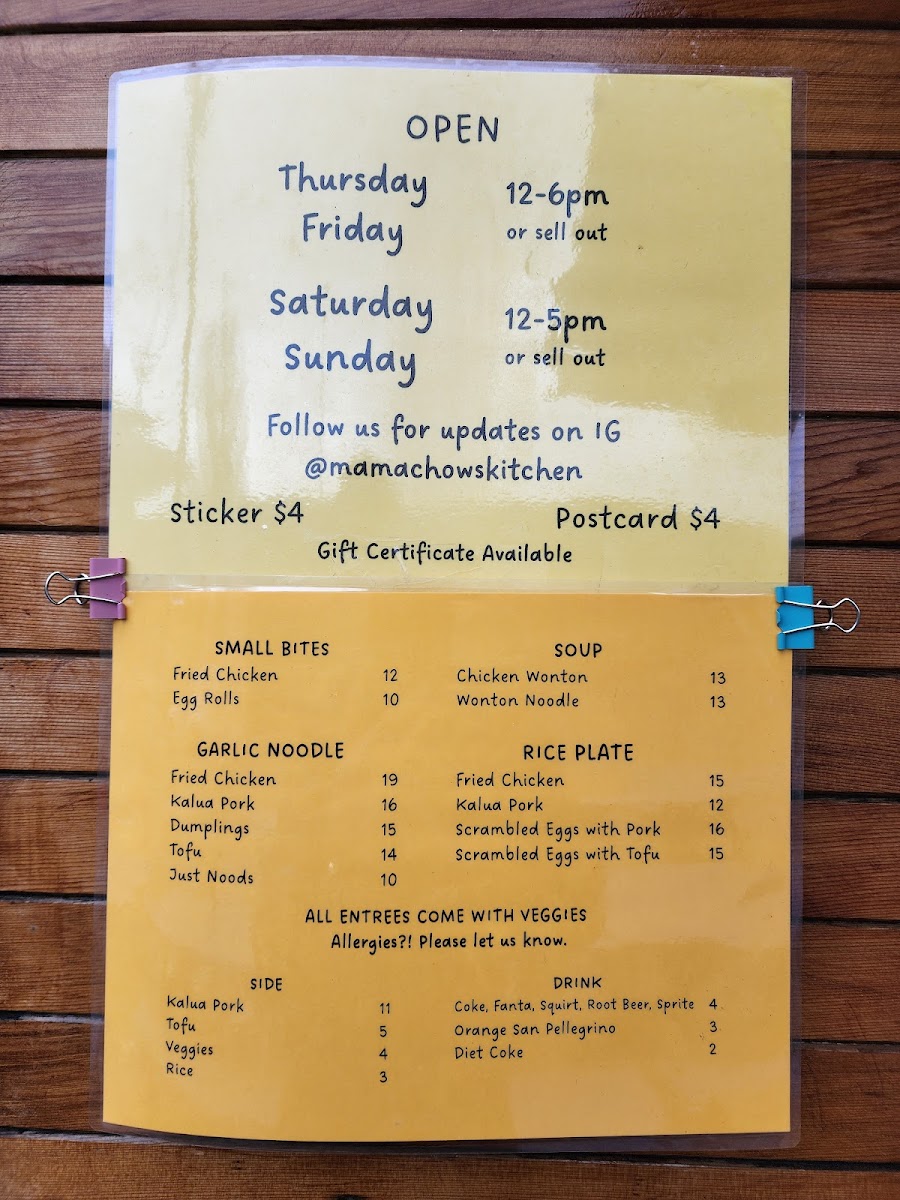 OPEN
Thursday
Friday
12-6pm
or sell out
Saturday
Sunday
12-5pm
or sell out
Follow us for updates on IG
@mamachowskitchen
Sticker $4
Postcard $4
Gift Certificate Available
SMALL BITES
Fried Chicken 12
Egg Rolls 10
SOUP
Chicken Wonton 13
Wonton Noodle 13
GARLIC NOODLE
Fried Chicken 19
Kalua Pork 16
Dumplings 15
Tofu 14
Just Noods 10
RICE PLATE
Fried Chicken 15
Kalua Pork 12
Scrambled Eggs with Pork 16
Scrambled Eggs with Tofu 15
ALL ENTREES COME WITH VEGGIES
Allergies?! Please let us know.
SIDE
Kalua Pork 11
Tofu 5
Veggies 4
Rice 3
DRINK
Coke, Fanta, Squirt, Root Beer, Sprite 4
Orange San Pellegrino 3
Diet Coke 2